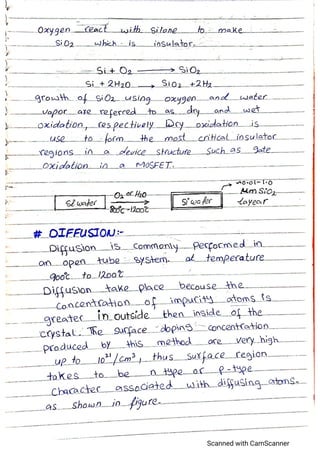 Oxygen react with silone to make
SiO2 which is insulator.
Si + O2 → SiO2
Si + 2H2O → SiO2 + 2H2
growth of SiO2 using oxygen and water
vapor are referred to as dry and wet
oxidation, respectively Dry oxidation is
use to form the most critical insulator
regions in a device structure such as gate
oxidation in a MOSFET.
→0.01-1.0
Si wafer O2 or H2O Si wafer μm SiO2
800c-1200c layear
# DIFFUSION:-
Diffusion is commonly performed in
an open tube system at temperature
900c to 1200c
Diffusion take place because the
concentration of impurity atoms is
greater in outside then inside of the
crystal. The surface doping concentration
produced by this method are very high
up to 10²¹/cm³, thus surface region
takes to be n type or p-type
character associated with diffusing atoms.
as shown in figure.
Scanned with CamScanner